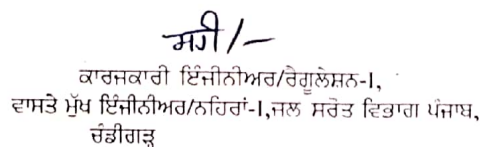 ਸਹੀ/-
ਕਾਰਜਕਾਰੀ ਇੰਜੀਨੀਅਰ/ਰੈਗੂਲੇਸ਼ਨ-I,
ਵਾਸਤੇ ਮੁੱਖ ਇੰਜੀਨੀਅਰ/ਨਹਿਰਾਂ-I,ਜਲ ਸਰੋਤ ਵਿਭਾਗ ਪੰਜਾਬ,
ਚੰਡੀਗੜ੍ਹ